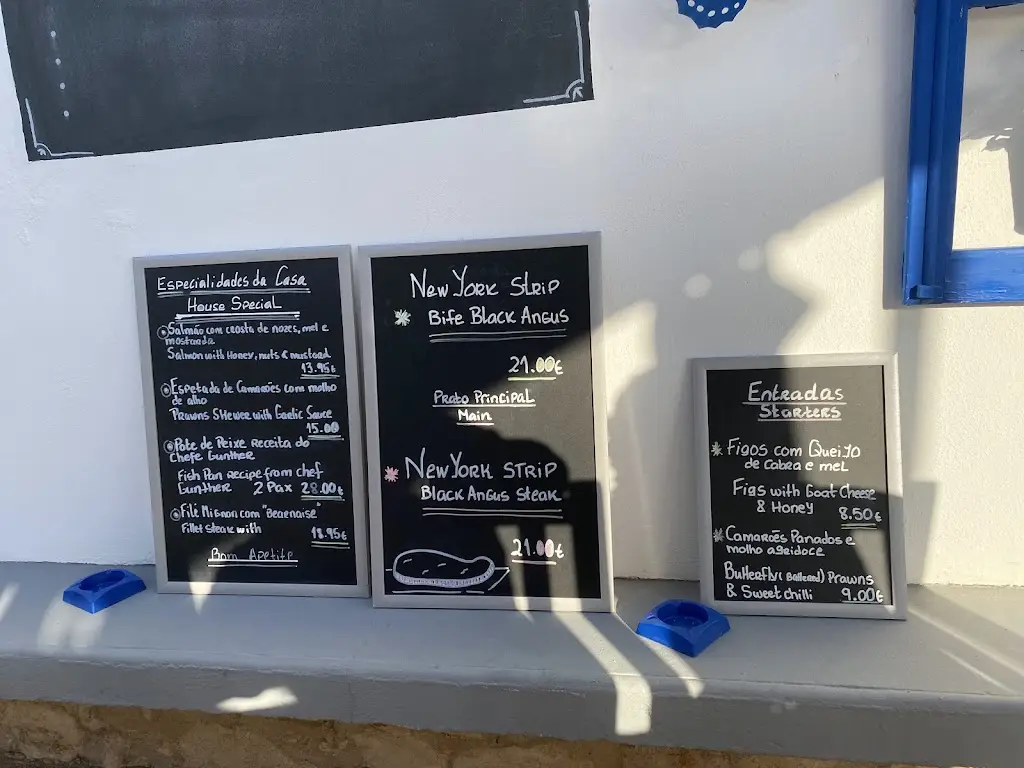 Especialidades da Casa
House Special
Salmão com crosta de nozes, mel e
mostarda
Salmon with Honey, nuts & mustard
13.95€
Espetada de Camarões com molho
de alho
Prawns Skewer with Garlic Sauce
15.00
Pote de Peixe receita do
Chefe Gunther
Fish Pan recipe from chef
Gunther 2 Pax 28.00€
Filé Mignon com "Bearnaise"
Fillet steak with
18.95€
Bom Apetite
New York Strip
Bife Black Angus
21.00€
Prato Principal
Main
New York Strip
Black Angus Steak
21.00€
Entradas
Starters
Figos com Queijo
de Cabra e mel
Figs with Goat Cheese
& Honey 8.50€
Camarões Panados e
molho agridoce
Butterfly (Battered) Prawns
& Sweet chilli 9.00€